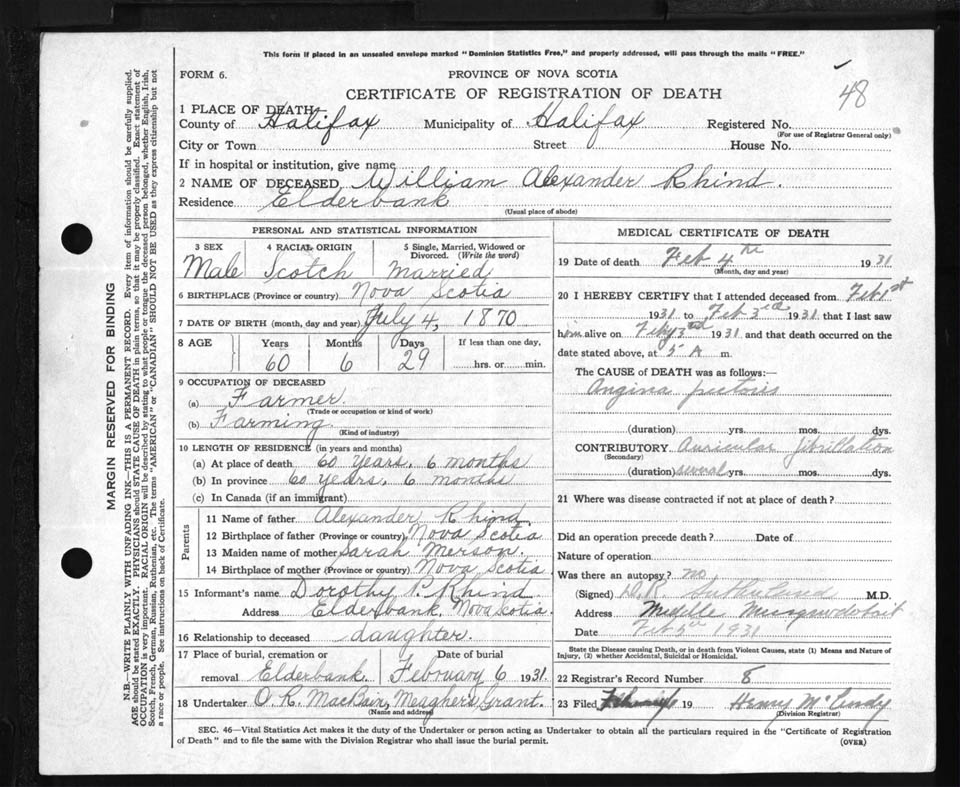 This form if placed in an unsealed envelope marked "Dominion Statistics Free," and properly addressed, will pass through the mails "FREE."
FORM 6.
PROVINCE OF NOVA SCOTIA
CERTIFICATE OF REGISTRATION OF DEATH
48
1 PLACE OF DEATH
County of Halifax Municipality of Halifax Registered No.
(For use of Registrar General only)
City or Town Street House No.
If in hospital or institution, give name
2 NAME OF DECEASED William Alexander Rhind.
Residence Elderbank
(Usual place of abode)
PERSONAL AND STATISTICAL INFORMATION
3 SEX 4 RACIAL ORIGIN 5 Single, Married, Widowed or Divorced. (Write the word)
Male Scotch Married
6 BIRTHPLACE (Province or country) Nova Scotia
7 DATE OF BIRTH (month, day and year) July 4, 1870
8 AGE Years Months Days If less than one day,
60 6 29 hrs. or min.
9 OCCUPATION OF DECEASED
(a) Farmer.
(Trade or occupation or kind of work)
(b) Farming
(Kind of industry)
10 LENGTH OF RESIDENCE (in years and months)
(a) At place of death 60 years. 6 months
(b) In province 60 years. 6 months
(c) In Canada (if an immigrant)
Parents
11 Name of father Alexander Rhind.
12 Birthplace of father (Province or country) Nova Scotia
13 Maiden name of mother Sarah Merson.
14 Birthplace of mother (Province or country) Nova Scotia
15 Informant's name Dorothy P. Rhind.
Address Elderbank, Nova Scotia.
16 Relationship to deceased daughter.
17 Place of burial, cremation or removal Elderbank. Date of burial February 6 1931.
18 Undertaker O. R. MacBain, Meaghers Grant.
(Name and address)
MEDICAL CERTIFICATE OF DEATH
19 Date of death Feb 4th 1931
(Month, day and year)
20 I HEREBY CERTIFY that I attended deceased from Feb 1st
1931 to Feb 3rd 1931 that I last saw
him alive on Feby 3rd 1931 and that death occurred on the
date stated above, at 5 A m.
The CAUSE of DEATH was as follows:
Angina pectoris
(duration) yrs. mos. dys.
CONTRIBUTORY Auricular fibrillation
(Secondary)
(duration) several yrs. mos. dys.
21 Where was disease contracted if not at place of death?
Did an operation precede death? Date of
Nature of operation
Was there an autopsy? no
(Signed) D.R. Sutherland M.D.
Address Middle Musquodoboit
Date Feb 5th 1931
State the Disease causing Death, or in death from Violent Causes, state (1) Means and Nature of Injury, (2) whether Accidental, Suicidal or Homicidal.
22 Registrar's Record Number 8
23 Filed 19 Henry McCurdy
(Division Registrar)
SEC. 46—Vital Statistics Act makes it the duty of the Undertaker or person acting as Undertaker to obtain all the particulars required in the "Certificate of Registration
of Death" and to file the same with the Division Registrar who shall issue the burial permit. (OVER)
MARGIN RESERVED FOR BINDING
N.B.—WRITE PLAINLY WITH UNFADING INK—THIS IS A PERMANENT RECORD. Every item of information should be carefully supplied.
AGE should be stated EXACTLY. PHYSICIANS should STATE CAUSE OF DEATH in plain terms, so that it may be properly classified. Exact statement of
OCCUPATION is very important. RACIAL ORIGIN will be described by stating to what people or tongue the deceased person belonged, whether English, Irish,
Scotch, French, German, Russian, Ruthenian, etc. The terms "AMERICAN" or "CANADIAN" SHOULD NOT BE USED as they express citizenship but not
a race or people. See instructions on back of Certificate.